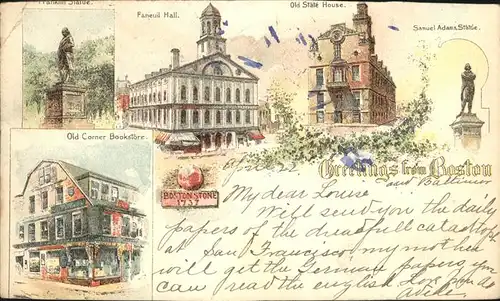 Franklin Statue.
Faneuil Hall.
Old State House.
Samuel Adams Statue.
Old Corner Bookstore.
Greetings from Boston
and Baltimore
April 22
BOSTON STONE
1737
My dear Louise
Will send you the daily
papers of the dreadfull catastrophe
at San Francisco, my mother
will get the German papers you
can read the english. Love from us